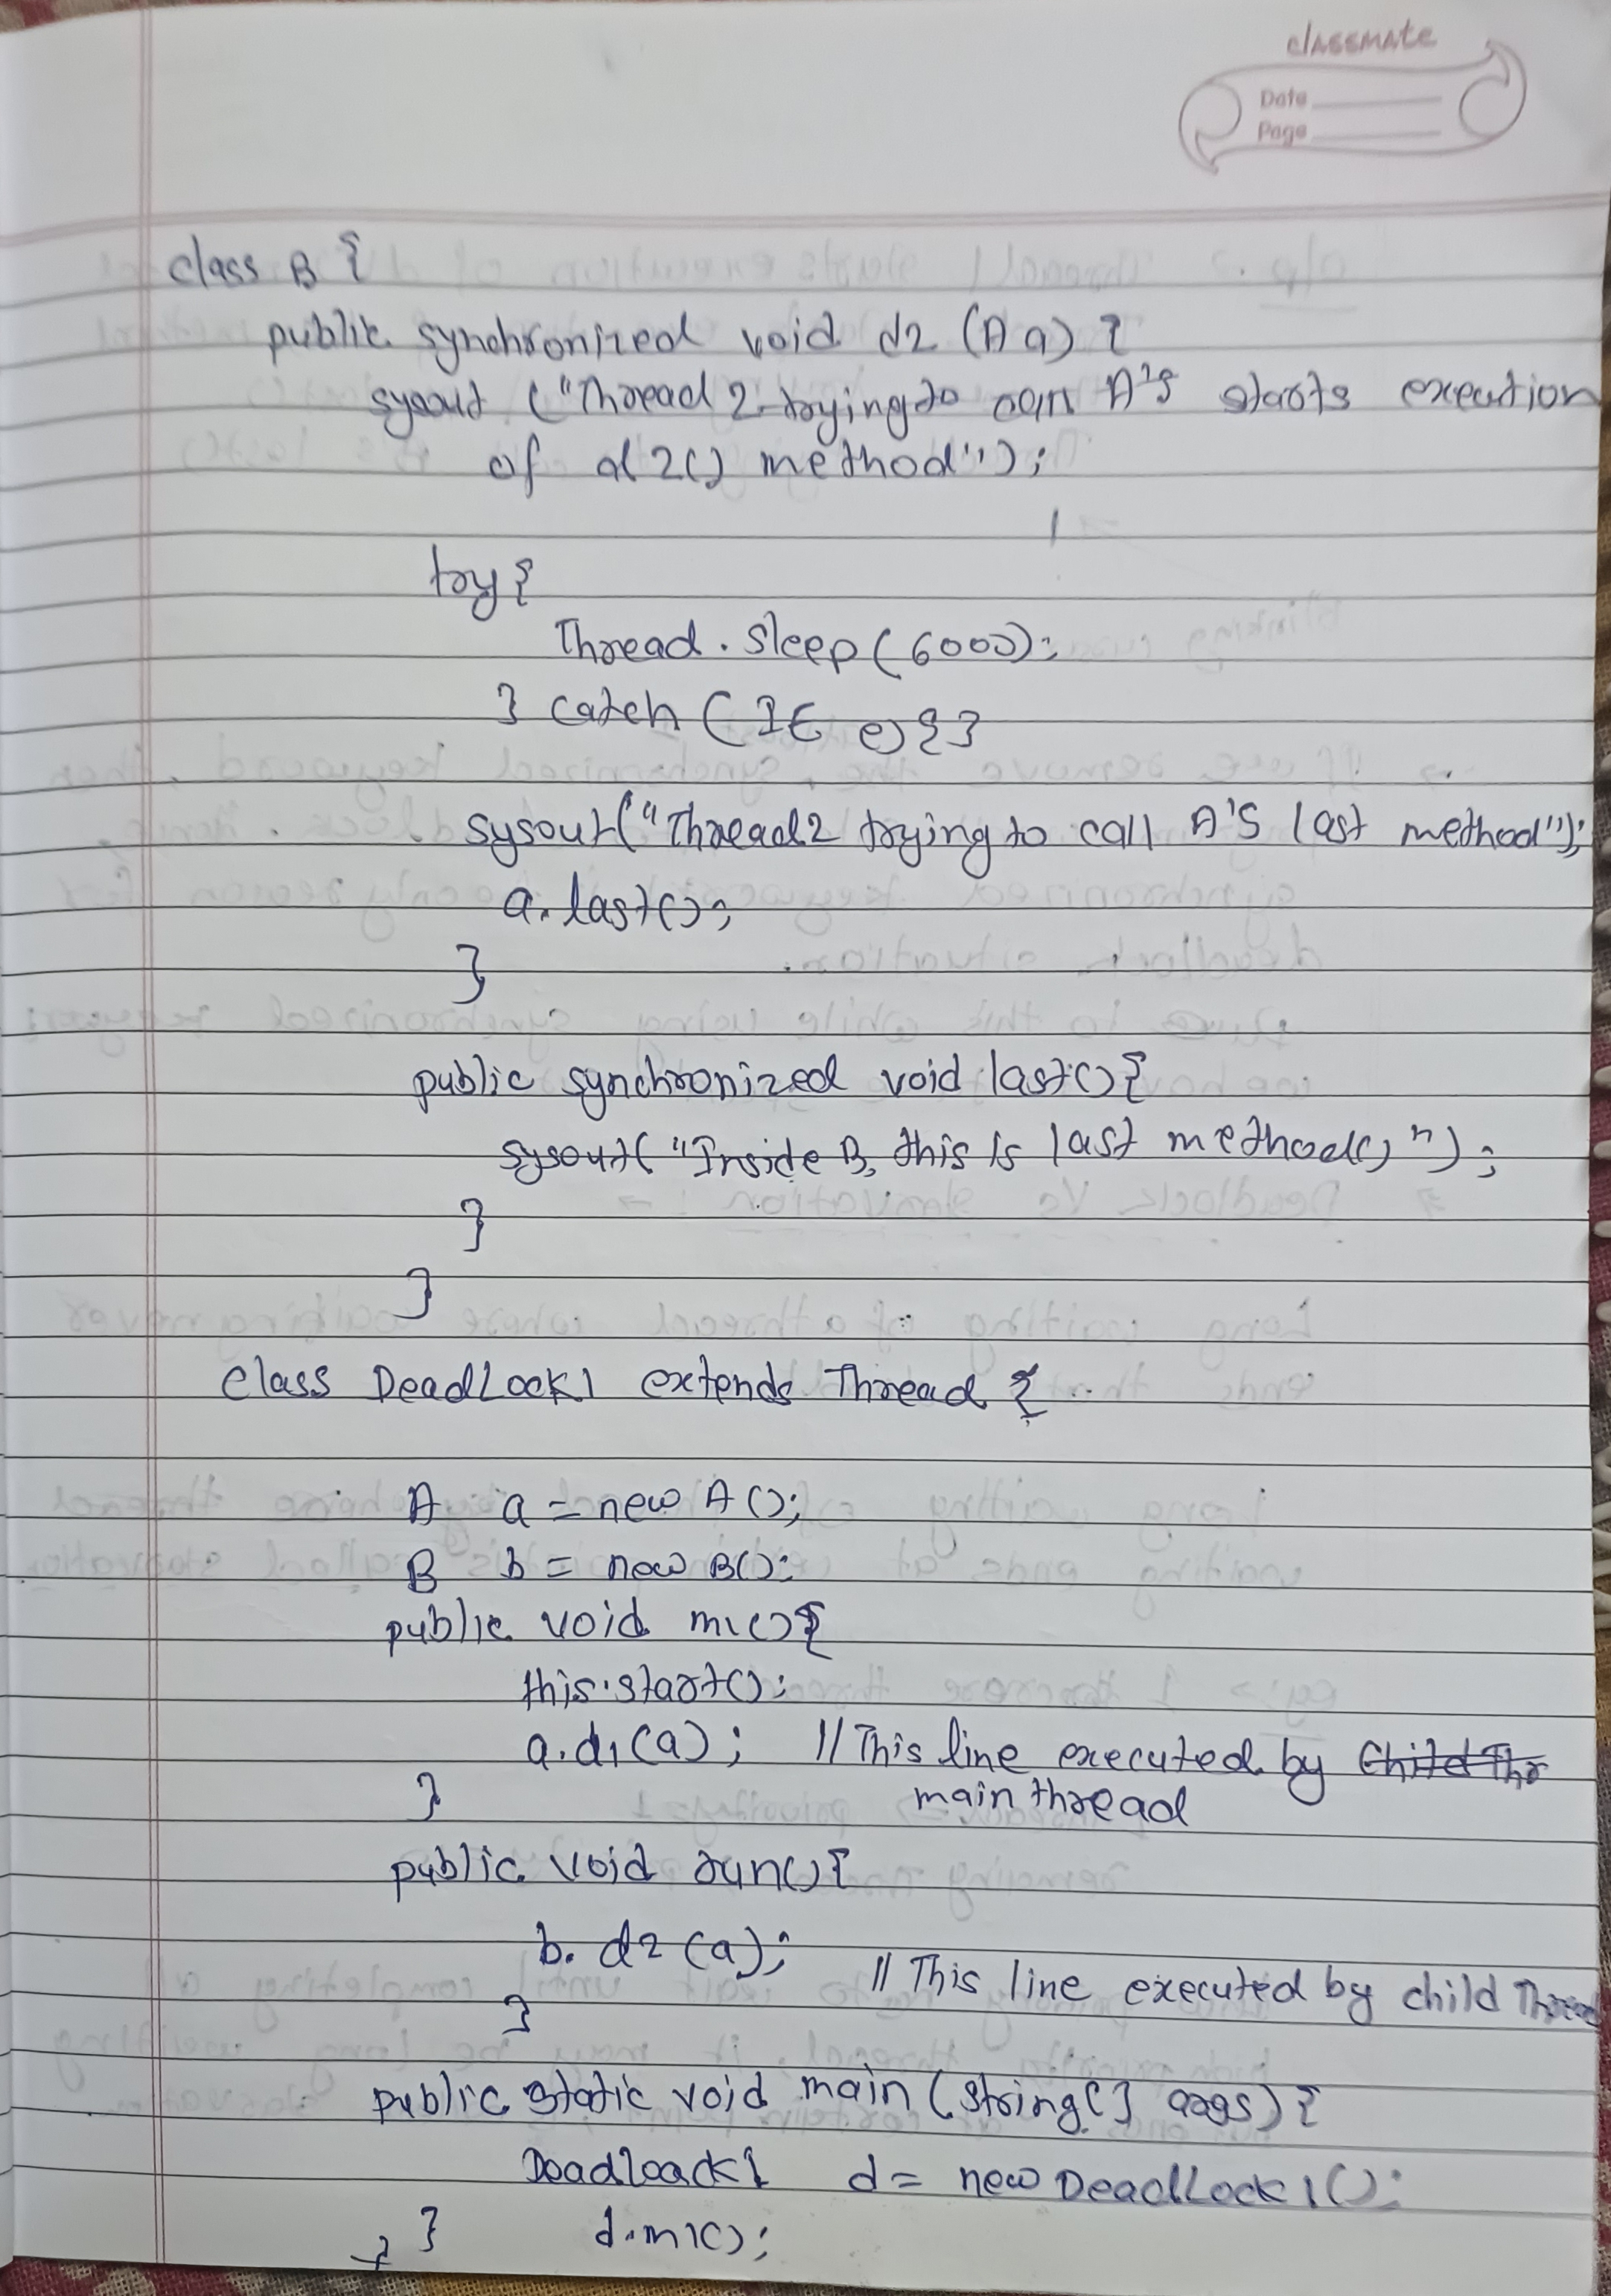 classmate
Date
Page
class B {
public synchronized void d2 (A a) {
sysout ("Thread 2 trying to call A's starts execution
of d2() method");
try {
Thread.sleep(6000);
} catch (IE e) {}
sysout("Thread2 trying to call A's last method");
a.last();
}
public synchronized void last() {
sysout("Inside B, this is last method()");
}
}
class DeadLock1 extends Thread {
A a = new A();
B b = new B();
public void m1() {
this.start();
a.d1(a); // This line executed by Child Thr
main thread
}
public void run() {
b.d2(a); // This line executed by child Thread
}
public static void main (String[] args) {
Deadloack1 d = new DeadLock1();
} d.m1();
}